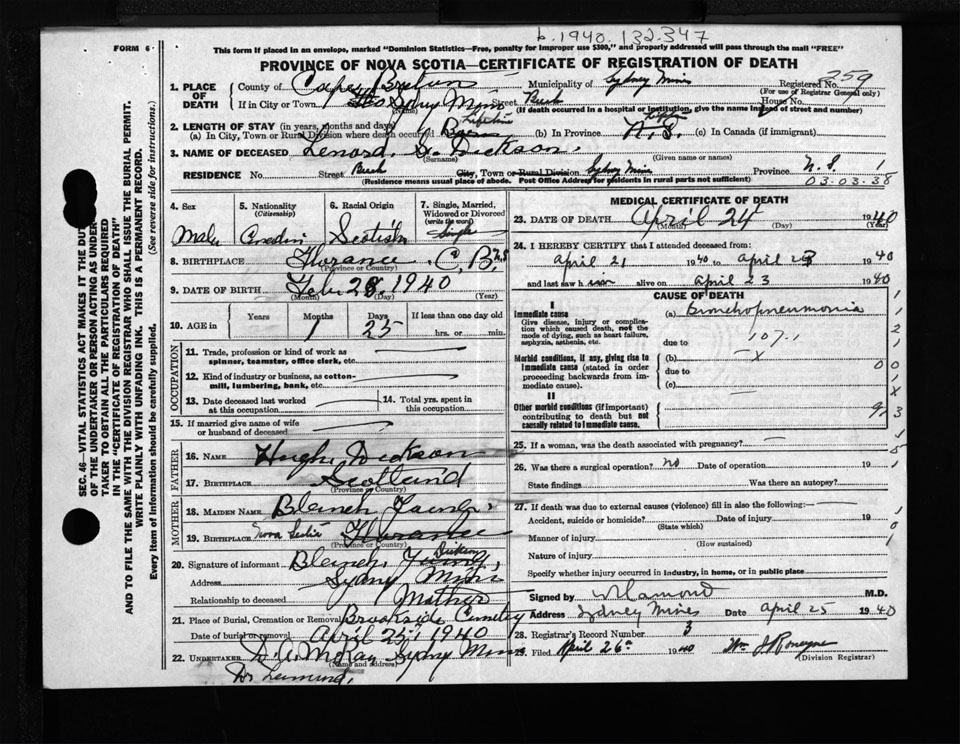 b. 1940. 132.347
FORM 6
This form If placed in an envelope, marked "Dominion Statistics—Free, penalty for improper use $300," and properly addressed will pass through the mail "FREE"
PROVINCE OF NOVA SCOTIA—CERTIFICATE OF REGISTRATION OF DEATH
SEC. 46—VITAL STATISTICS ACT MAKES IT THE DUTY
OF THE UNDERTAKER OR PERSON ACTING AS UNDER-
TAKER TO OBTAIN ALL THE PARTICULARS REQUIRED
IN THE "CERTIFICATE OF REGISTRATION OF DEATH"
AND TO FILE THE SAME WITH THE DIVISION REGISTRAR WHO SHALL ISSUE THE BURIAL PERMIT.
WRITE PLAINLY WITH UNFADING INK. THIS IS A PERMANENT RECORD.
Every item of Information should be carefully supplied. (See reverse side for instructions.)
1. PLACE OF DEATH County of Cape Breton Municipality of Sydney Mines Registered No. 259
(For use of Registrar General only)
If in City or Town Sydney Mines Street Beech House No.
(Name) (If death occurred in a hospital or institution, give the name instead of street and number)
2. LENGTH OF STAY (in years, months and days)
(a) In City, Town or Rural Division where death occurred Lifetime (b) In Province Lifetime N. S. (c) In Canada (if immigrant)
3. NAME OF DECEASED Lenard. Dickson.
(Surname) (Given name or names)
RESIDENCE No. Street Beech City, Town or Rural Division Sydney Mines Province N. S. 1
(Residence means usual place of abode. Post Office Address for residents in rural parts not sufficient)
03-03-38
4. Sex Male
5. Nationality (Citizenship)
6. Racial Origin Scotish
7. Single, Married, Widowed or Divorced (write the word) Single
8. BIRTHPLACE Florance C. B. N.S
(Province or Country)
9. DATE OF BIRTH Feb 28, 1940
(Month) (Day) (Year)
10. AGE in Years Months Days If less than one day old
1 25 hrs. or min.
OCCUPATION
11. Trade, profession or kind of work as spinner, teamster, office clerk, etc.
12. Kind of industry or business, as cotton-mill, lumbering, bank, etc.
13. Date deceased last worked at this occupation
14. Total yrs. spent in this occupation
15. If married give name of wife or husband of deceased
FATHER
16. NAME Hugh Dickson
17. BIRTHPLACE Scotland
(Province or Country)
MOTHER
18. MAIDEN NAME Blanch
19. BIRTHPLACE Nova Scotia Florance
(Province or Country)
20. Signature of informant Blanch Dickson
Address Sydny Mines
Relationship to deceased Mother
21. Place of Burial, Cremation or Removal Brookside Cemetry
Date of burial or removal April 25, 1940
22. UNDERTAKER D. A. McKay Sydny Mines
(Name and address)
MEDICAL CERTIFICATE OF DEATH
23. DATE OF DEATH April 24 1940
(Month) (Day) (Year)
24. I HEREBY CERTIFY that I attended deceased from:
April 21 1940 to April 23 1940
and last saw him alive on April 23 1940
CAUSE OF DEATH
I
Immediate cause
Give disease, injury or complication which caused death, not the mode of dying, such as heart failure, asphyxia, asthenia, etc.
(a) Bronchopneumonia
due to 107.1
Morbid conditions, if any, giving rise to immediate cause (stated in order proceeding backwards from immediate cause).
(b) x
due to
(c)
II
Other morbid conditions (if important) contributing to death but not causally related to immediate cause.
25. If a woman, was the death associated with pregnancy? —
26. Was there a surgical operation? no Date of operation 19
State findings Was there an autopsy?
27. If death was due to external causes (violence) fill in also the following:
Accident, suicide or homicide? Date of injury 19
(State which)
Manner of injury
(How sustained)
Nature of injury
Specify whether injury occurred in industry, in home, or in public place
Signed by M.D.
Address Sydney Mines Date April 25 1940
28. Registrar's Record Number 3
29. Filed April 26th 1940 Wm
(Division Registrar)